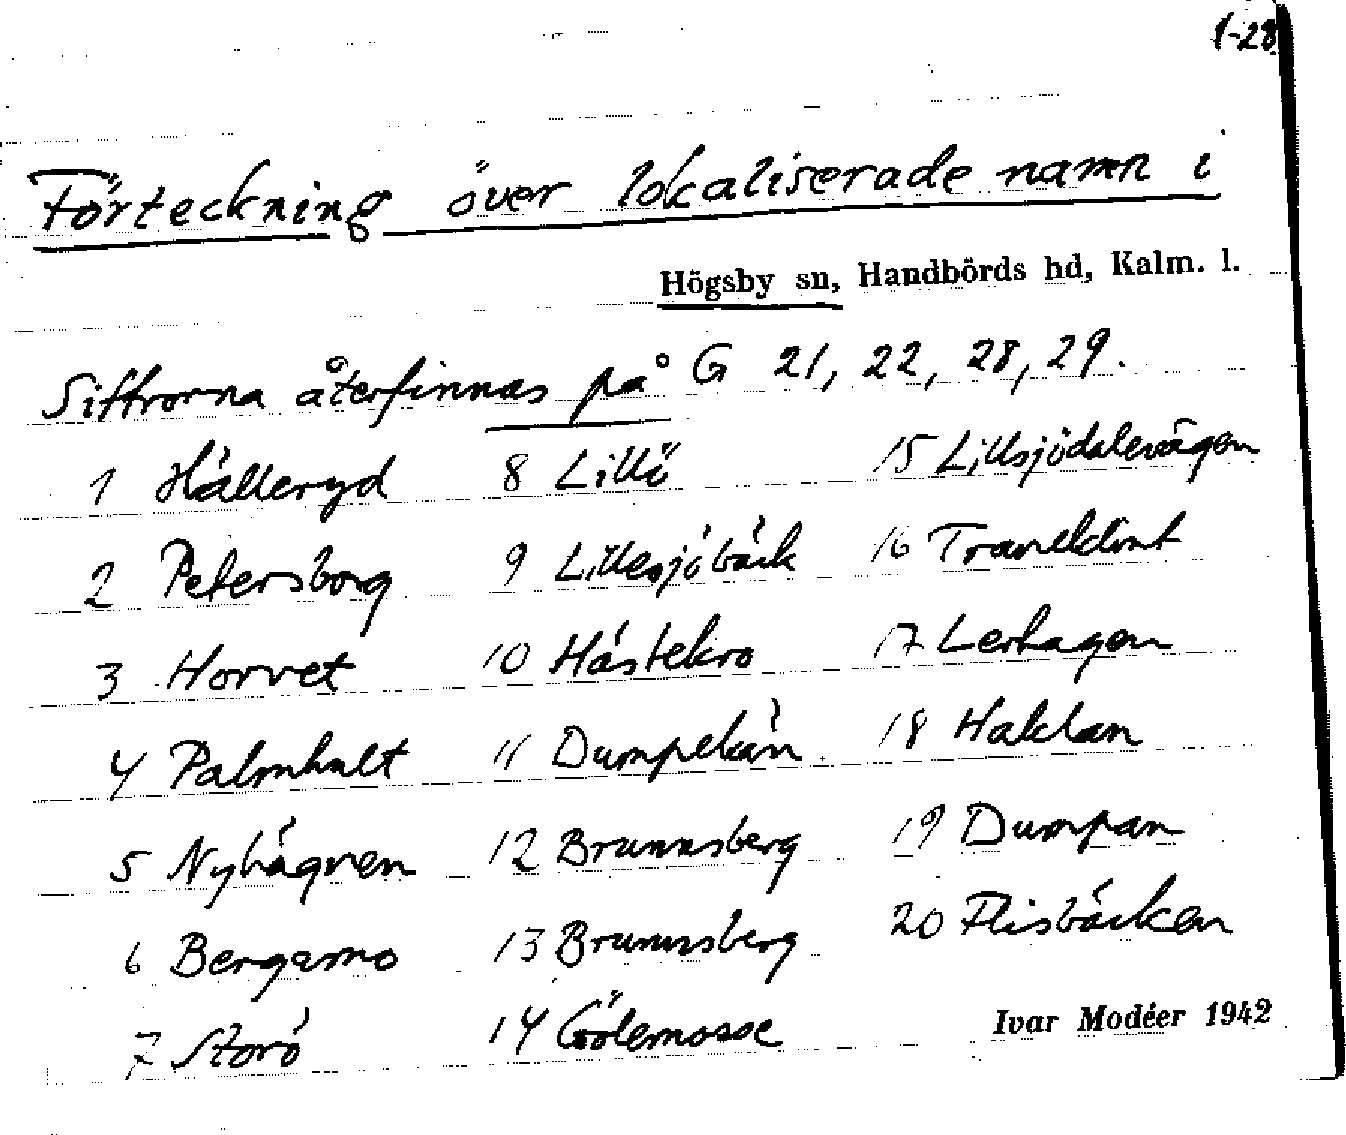 1-28
Förteckning över lokaliserade namn i
Högsby sn, Handbörds hd, Kalm. l.
Siffrorna återfinnas på G 21, 22, 28, 29.
1 Hälleryd 8 Lillö 15 Lillsjödalevägen
2 Petersborg 9 Lillesjöbäck 16
3 Horvet 10 Hästekro 17 Lerhagen
4 Palmhult 11 Dumpekän 18 Haklan
5 Nyhagnen 12 Brunnsberg 19 Dumpan
6 Bergamo 13 Brunnsberg 20 Flisbäcken
7 Storö 14 Gölemosse
Ivar Modéer 1942